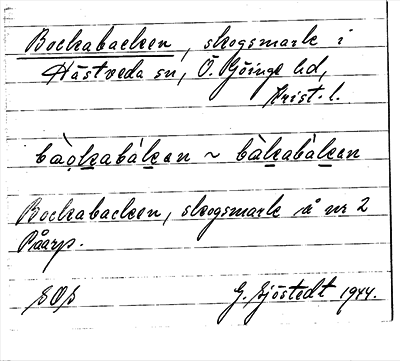 Bockabacken, skogsmark i
Hästveda sn, Ö. Göinge hd,
Krist. l.
bào̯kabákan ~ bàkabákan
Bockabacken, skogsmark å nr 2
Råarp.
SOS G. Sjöstedt 1944.